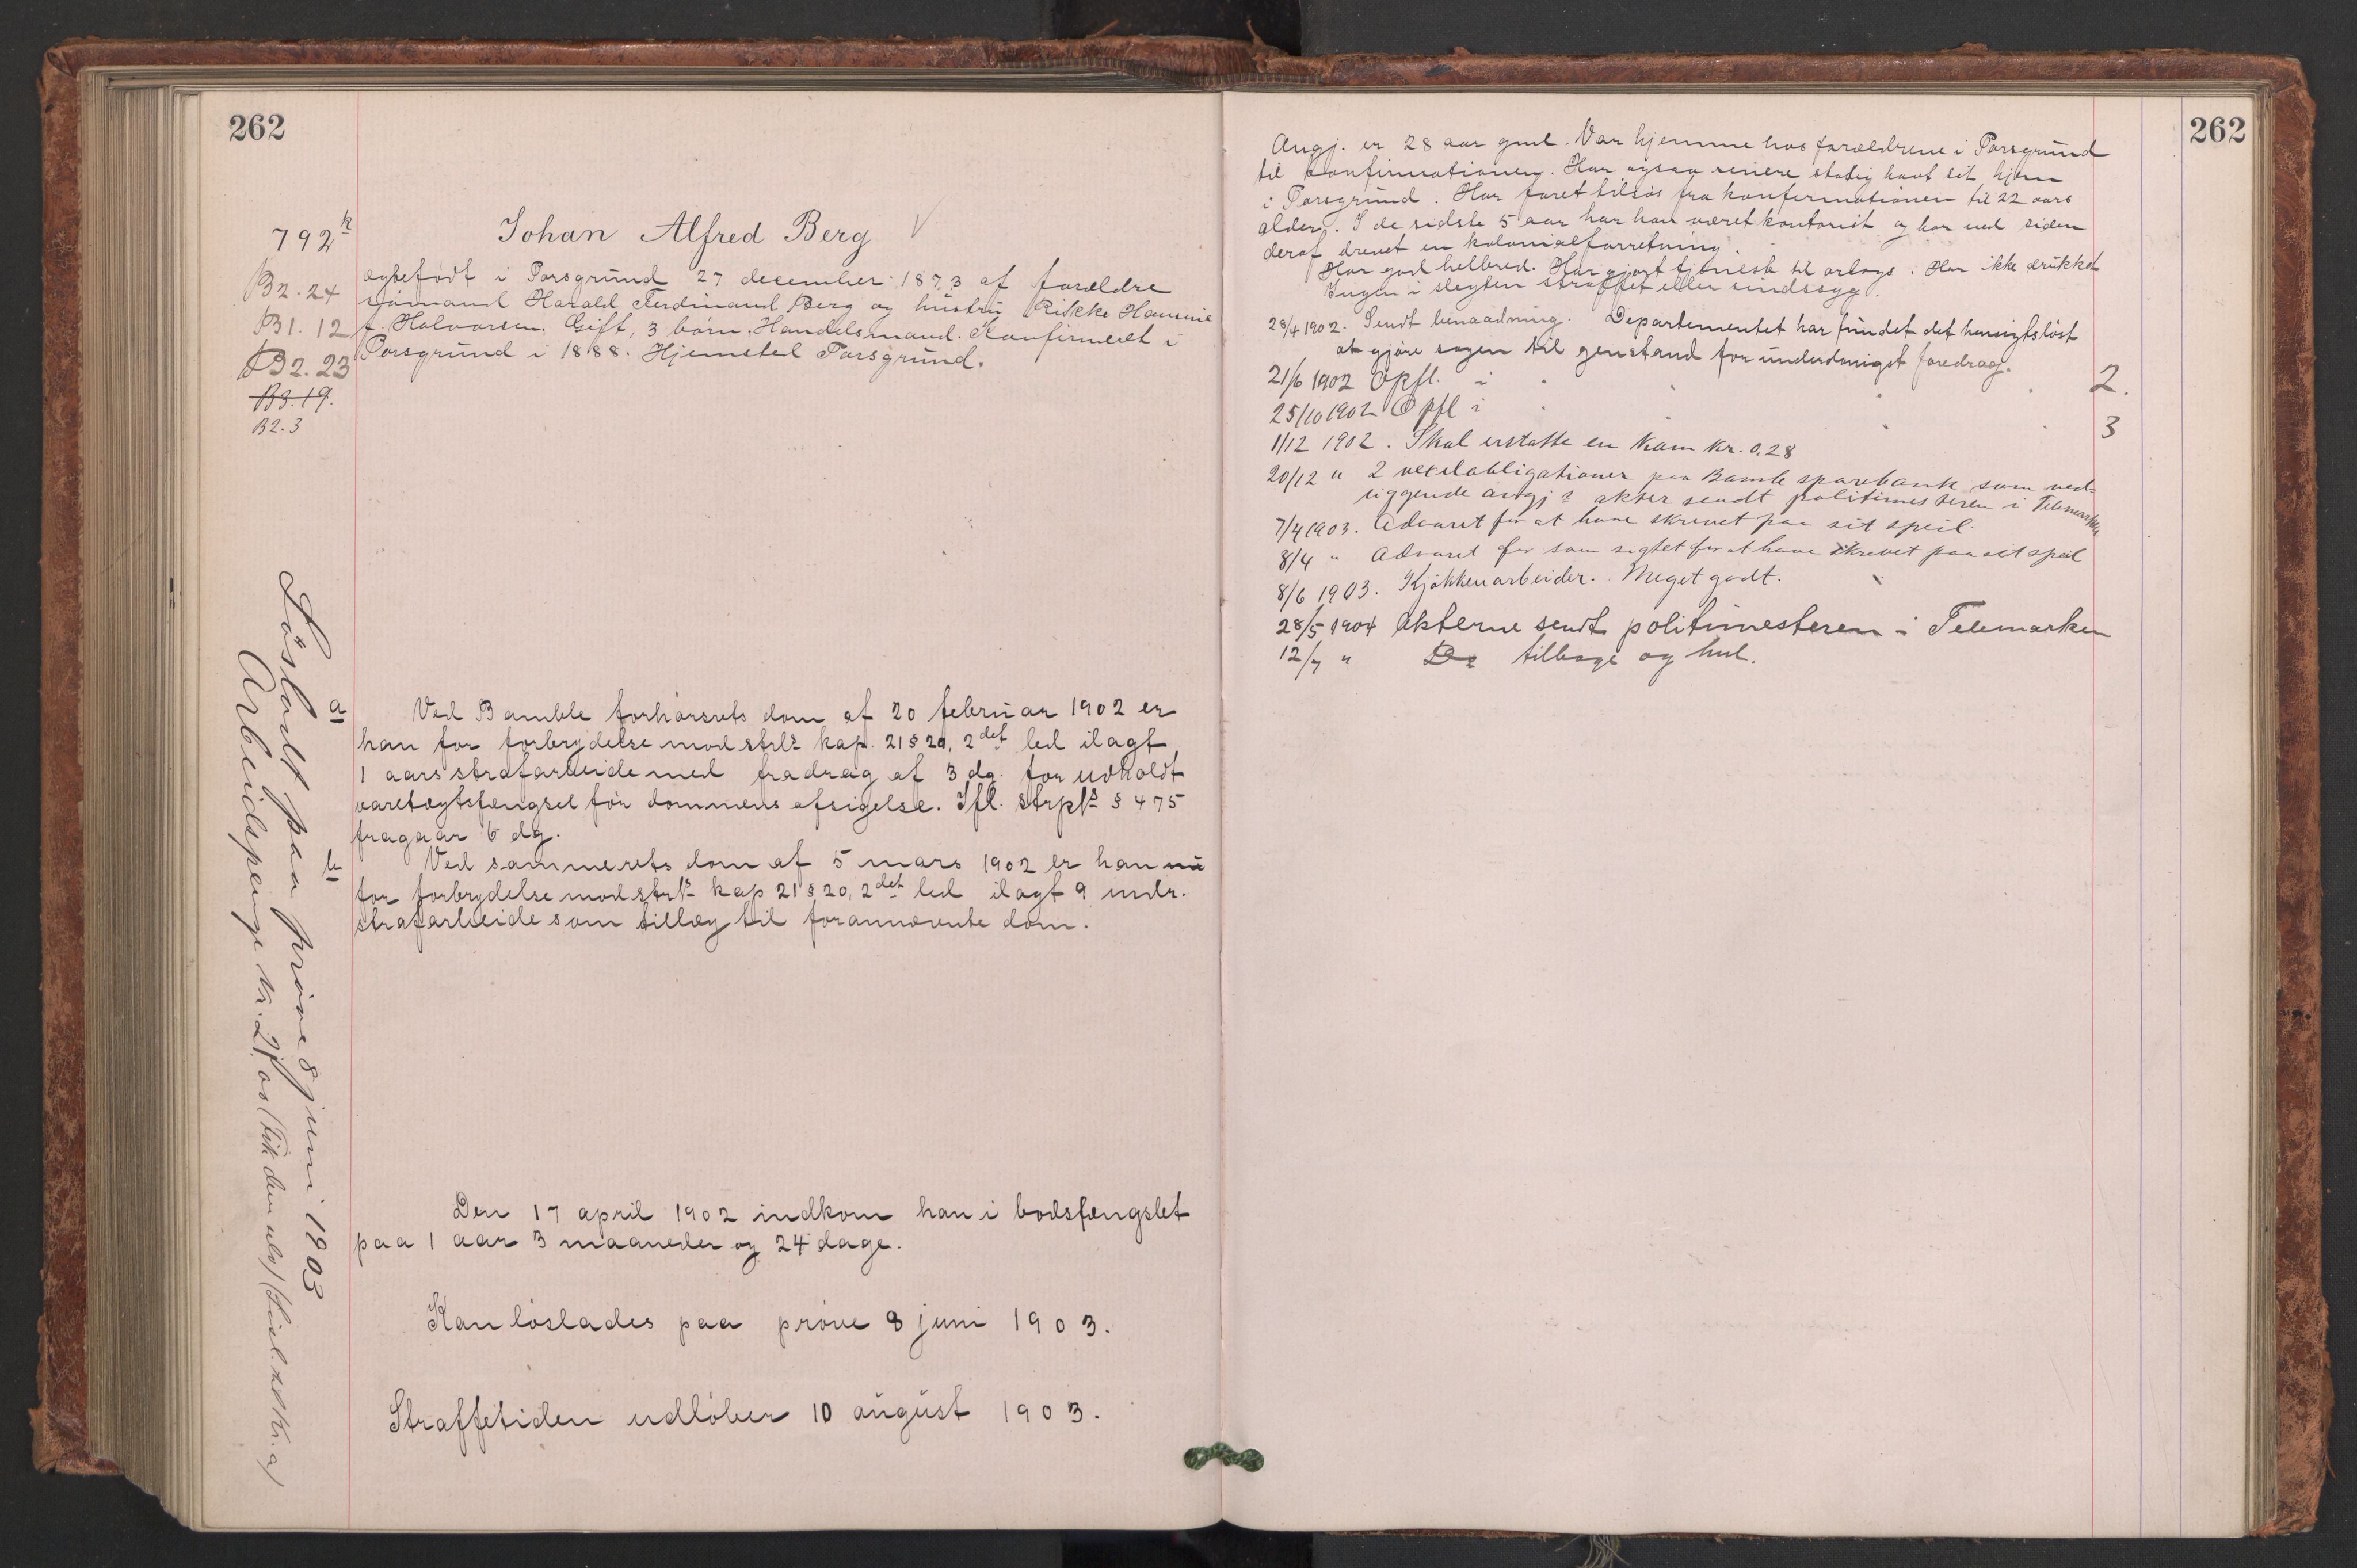 262
792 k
B2.24
B1.12
B2.23
B3.19.
B2.3
Johan Alfred Berg
ægtefødt i Porsgrund 27 december 1873 af forældre
sjømand Harald Ferdinand Berg og hustru Rikke Hansine
f. Halvorsen. Gift, 3 børn. Handelsmand. Konfirmeret i
Porsgrund i 1888. Hjemsted Porsgrund.
a
Ved Bamble forhørsrets dom af 20 februar 1902 er
han for forbrydelse mod strls kap. 21 § 20, 2det led ilagt
1 aars strafarbeide med fradrag af 3 dg. for udholdt
varetægtsfængsel før dommens afsigelse. Ifl. strpls § 475
fragaar 6 dg.
b
Ved sammerets dom af 5 mars 1902 er han nu
for forbrydelse mod strls kap 21 § 20, 2det led ilagt 9 mdr.
strafarbeide som tillæg til forannævnte dom.
Den 17 april 1902 indkom han i bodsfængslet
paa 1 aar 3 maaneder og 24 dage.
Kan løslades paa prøve 8 juni 1903.
Straffetiden udløber 10 august 1903.
Løsladt paa prøve 8 juni 1903
Arbeidspenge kr.
262
Angj. er 28 aar gml. Var hjemme hos forældrene i Porsgrund
til konfirmationen. Har ogsaa senere stadig havt sit hjem
i Porsgrund. Har faret tilsøs fra konfirmationen til 22 aars
alder. I de sidste 5 aar har han været kontorist og har ved siden
deraf drevet en kolonialforretning.
Har god helbred. Har gjort tjeneste til orlogs. Har ikke drukket
Ingen i slegten straffet eller sindssyg.
28/4 1902. Sendt benaadning. Departementet har fundet det hensigtsløst
at gjøre sagen til genstand for underdanigst foredrag.
21/6 1902 Opfl. i 2.
25/10 1902 Opfl i 3
1/12 1902. Skal erstatte en kam kr. 0.28
20/12 " 2 vexelobligationer paa Bamble sparebank som ved-
liggende angj.s akter sendt politimesteren i Telemarken
7/4 1903. Advaret for at have skrevet paa sit speil.
8/4 " Advaret for som sigtet for at have skrevet paa sit speil
8/6 1903. Kjøkkenarbeider. Meget godt.
28/5 1904 Akterne sendt politimesteren i Telemarken
12/7 " De tilbage og hul.